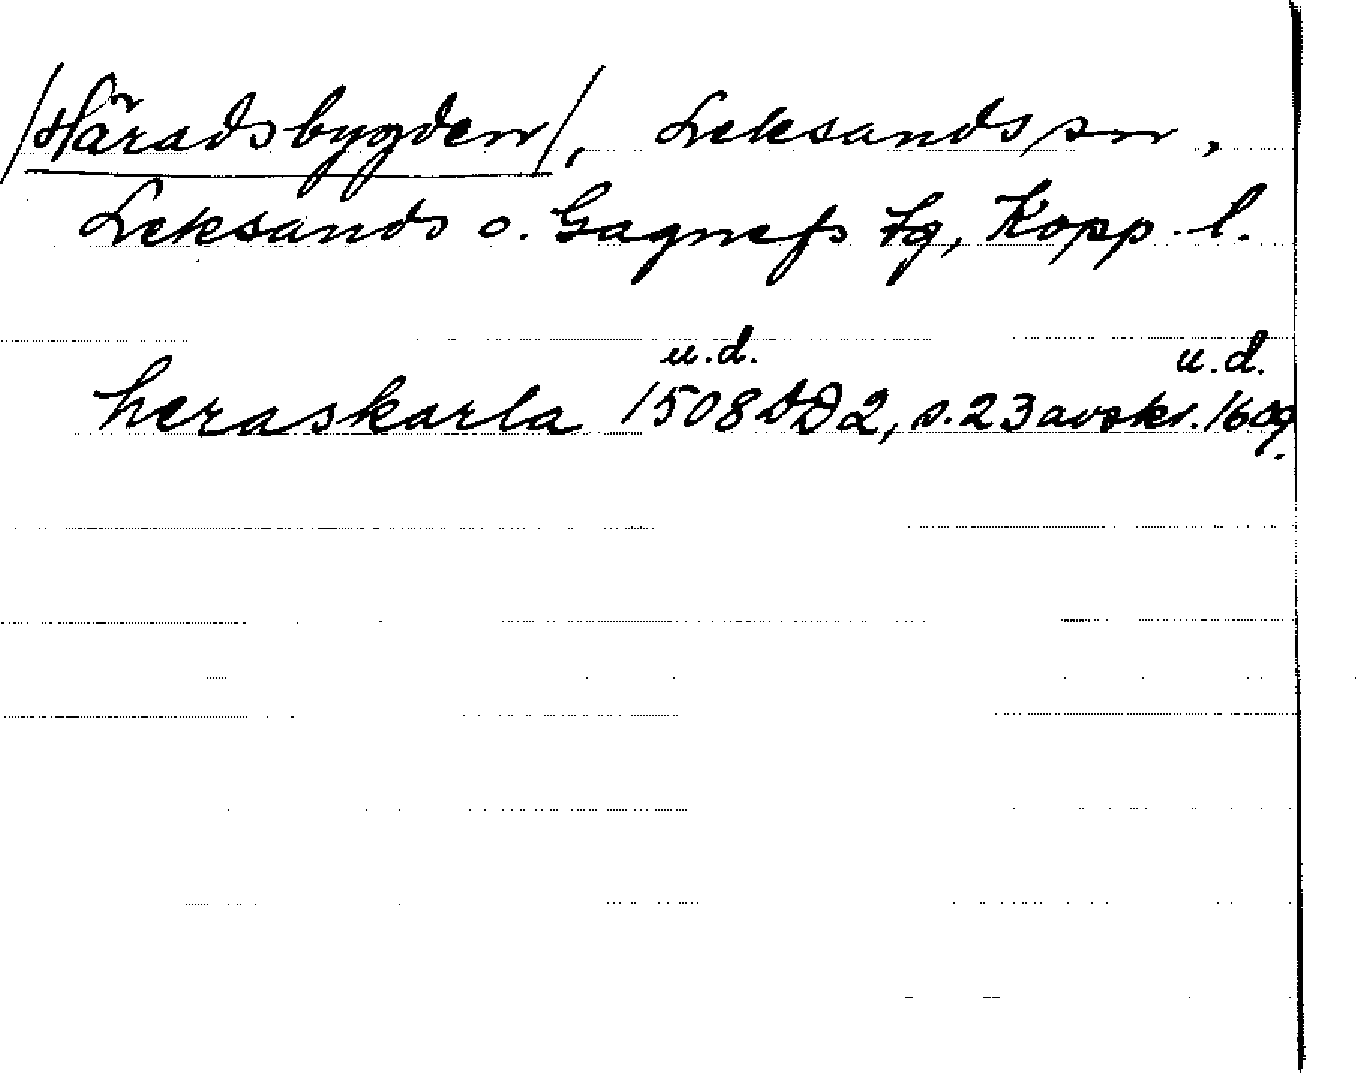 /Häradsbygden/, Leksands sn,
Leksands o. Gagnefs tg, Kopp. l.
u.d. u.d.
heraskarla 1508 DD 2, s. 23 avskr. 1609.